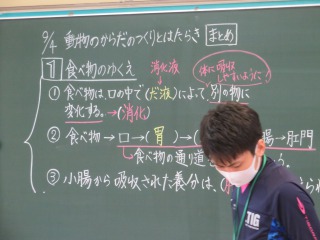 9/4 動物のからだのつくりとはたらき まとめ
1 食べ物のゆくえ
消化液
体に吸収
しやすいように
① 食べ物は、口の中で(だ液)によって、別の物に
変化する。→(消化)
② 食べ物→口→( )→(胃)→
腸→肛門
食べ物の通り道
う。
③ 小腸から吸収された養分は、(
TIG